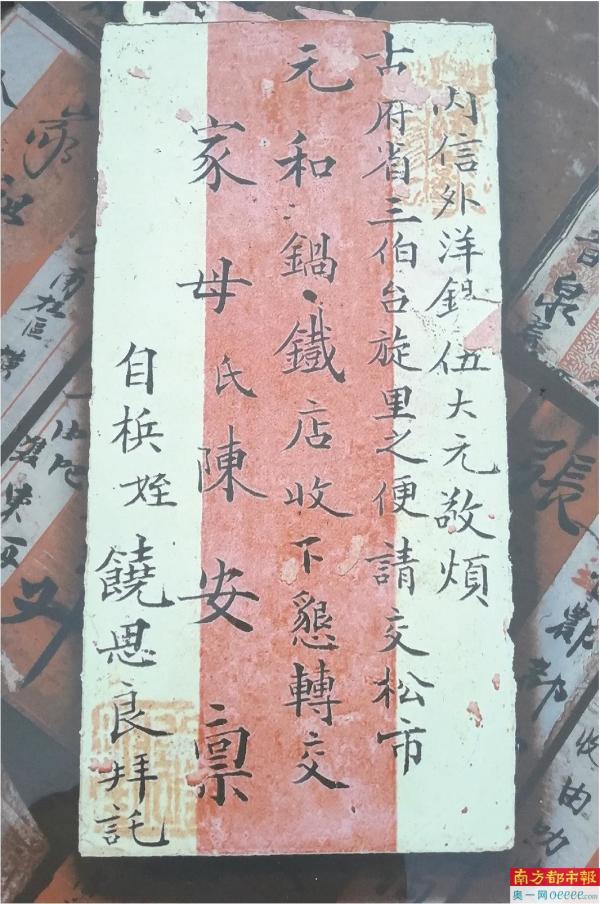 內信外洋銀伍大元敬煩
古府省三伯台旋里之便請交松市
元和鍋鐵店收下懇轉交
家母氏陳安稟
自梹姪饒思良拜託
張
泉
南方都市報
奥一网oeeee.com